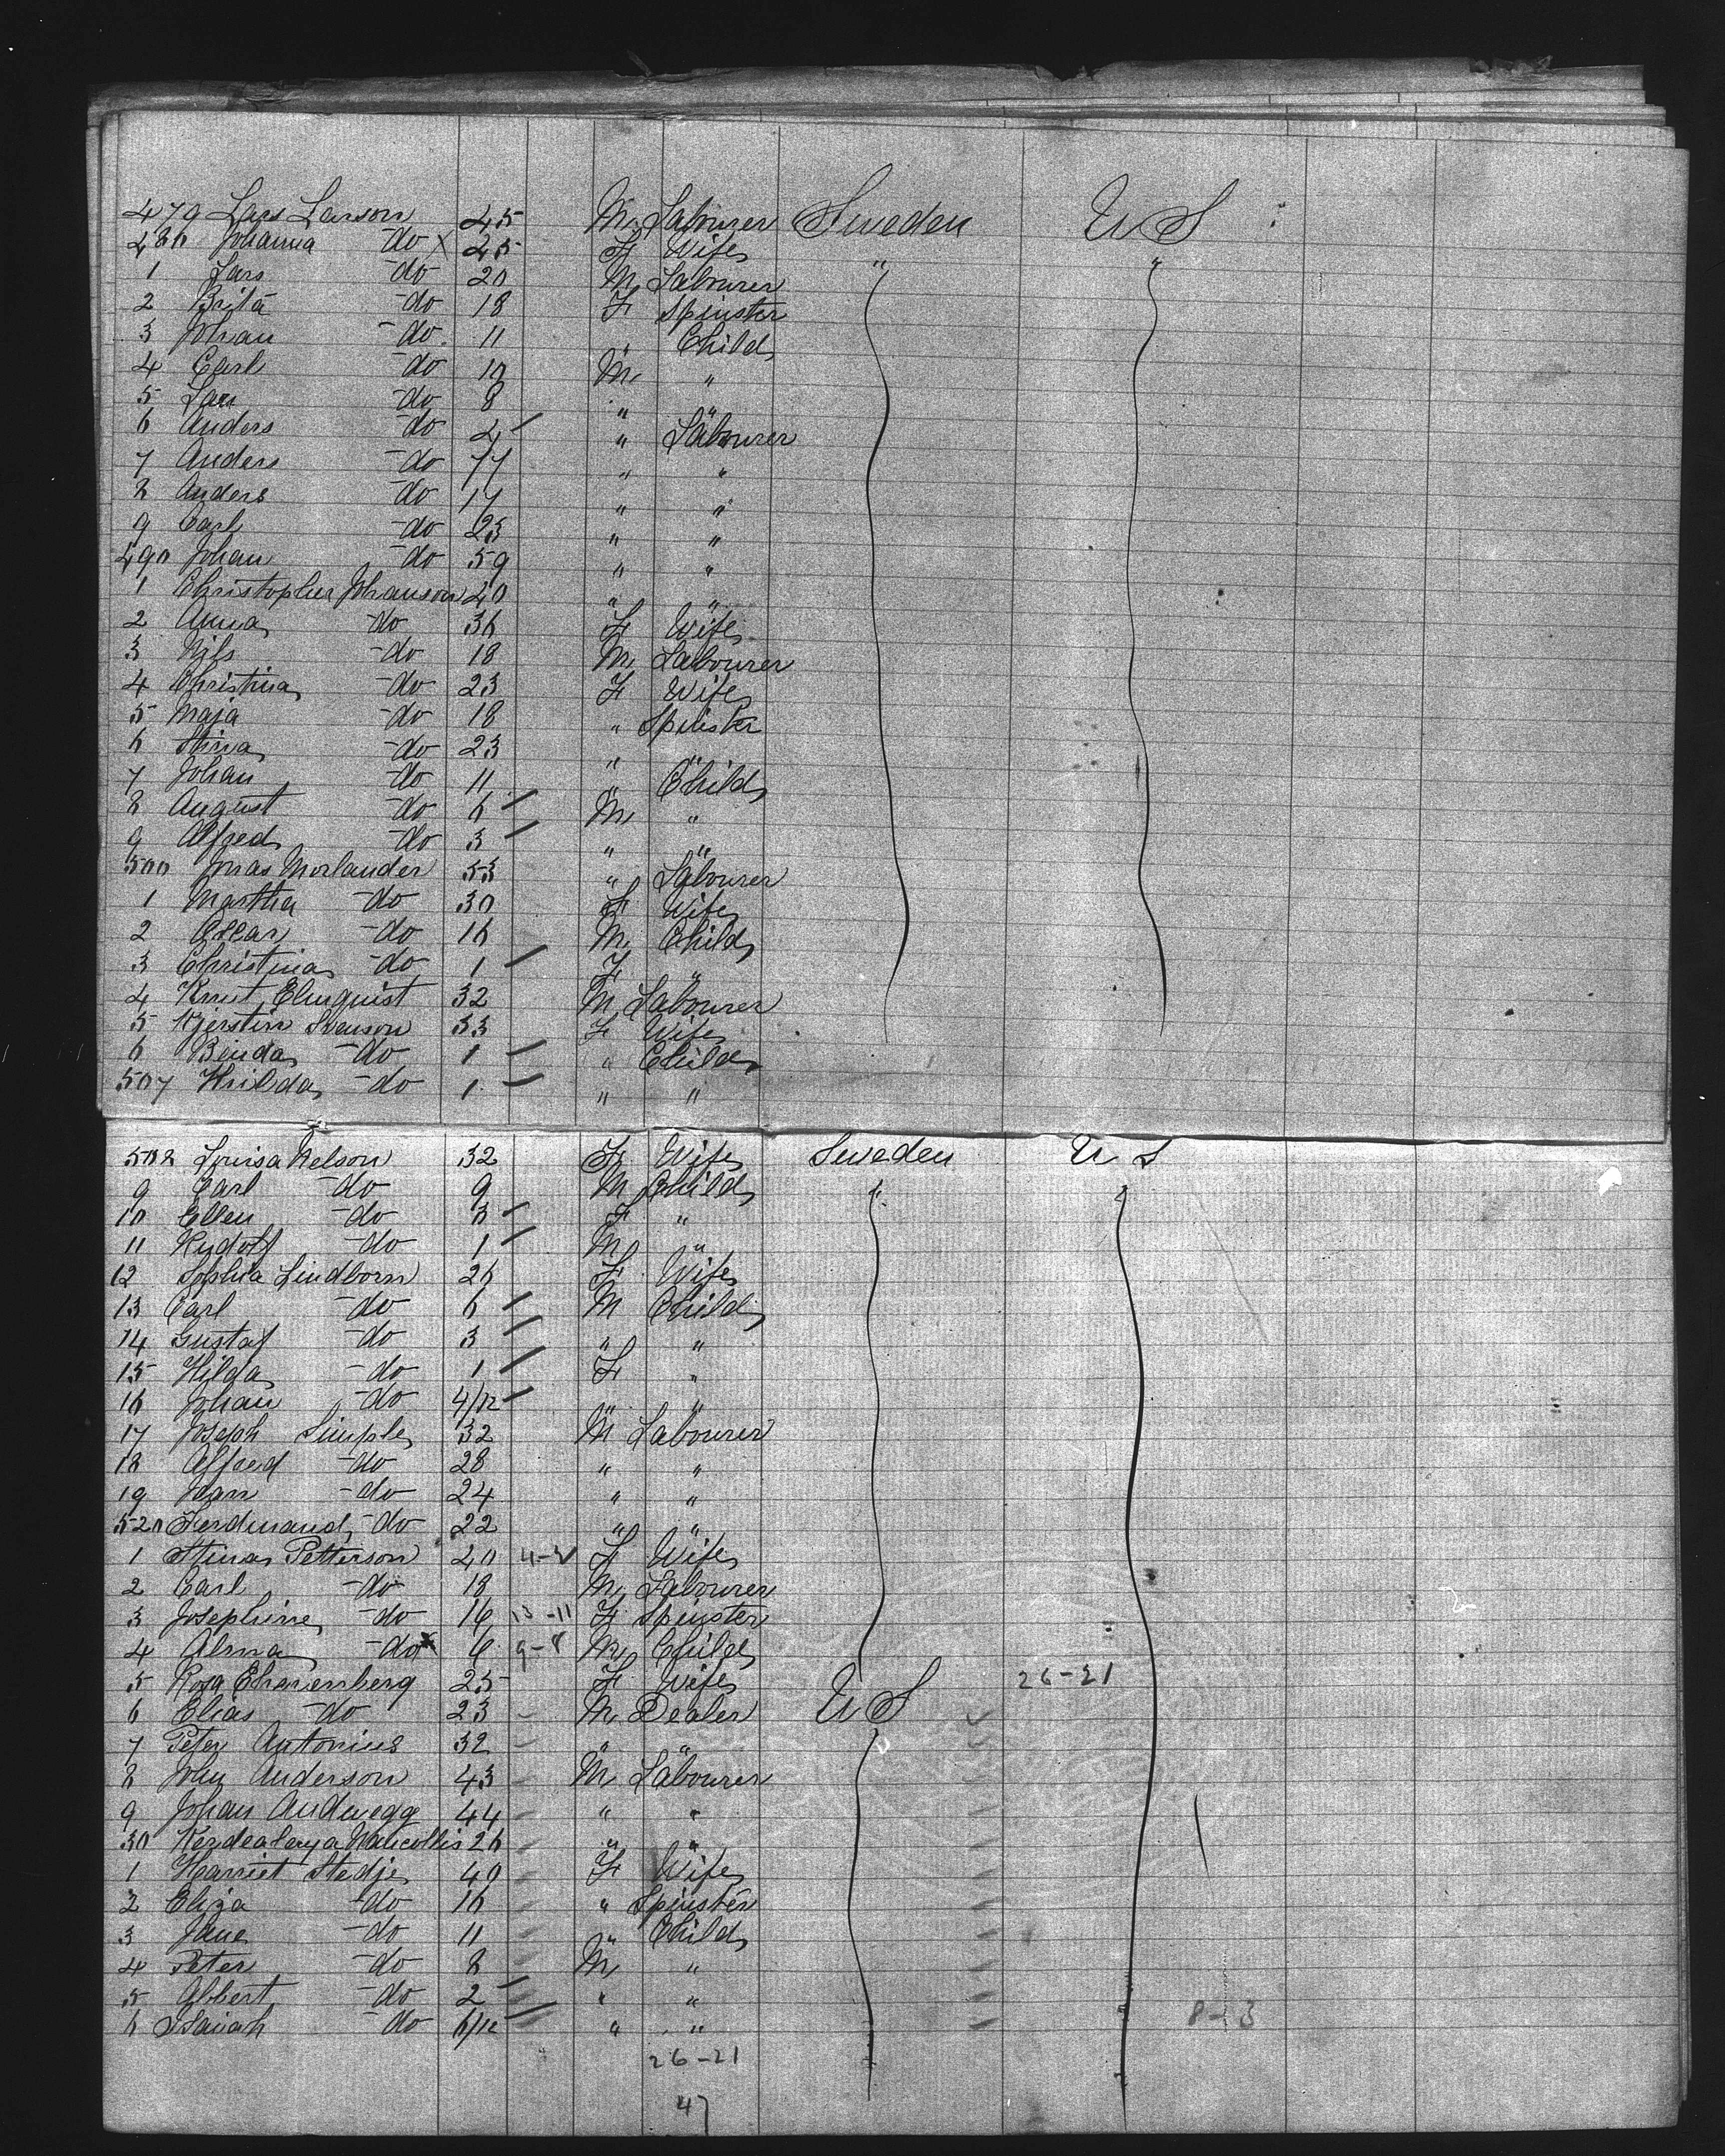 479 Lars Larson 45 M Labourer Sweden U S
480 Johanna do X 45 F Wife " "
1 Lars do 20 M Labourer
2 Brita do 18 F Spinster
3 Johan do 11 " Child
4 Carl do 10 M "
5 Lars do 8 " "
6 Anders do 2 " Labourer
7 Anders do 77 " "
8 Anders do 17 " "
9 Carl do 23 " "
490 Johan do 59 " "
1 Christopher Johanson 40 " "
2 Anna do 36 F Wife
3 Nils do 18 M Labourer
4 Christina do 23 F Wife
5 Maja do 18 " Spinster
6 Stina do 23 " "
7 Johan do 11 " Child
8 August do 6 M "
9 Alfred do 3 " "
500 Jonas Morlander 53 " Labourer
1 Martha do 30 F Wife
2 Oscar do 16 M Child
3 Christina do 1 F "
4 Knut Elmquist 32 M Labourer
5 Kjerstin Swenson 33 F Wife
6 Benda do 1 " Child
507 Hulda do 1 " "
508 Louisa Nelson 32 F Wife Sweden U S
9 Carl do 9 M Child " "
10 Ellen do 3 F "
11 Rudolf do 1 M "
12 Sophia Lindborn 26 F Wife
13 Carl do 6 M Child
14 Gustaf do 3 " "
15 Hilda do 1 F "
16 Johan do 4/12 " "
17 Joseph Simple 32 M Labourer
18 Alfred do 28 " "
19 Jean do 24 " "
520 Ferdinand do 22 " "
1 Stina Petterson 40 F Wife
2 Carl do 18 M Labourer
3 Josephine do 16 13-11 F Spinster
4 Alma do x 6 9-8 M Child
5 Rosa Eharenberg 25 F Wife U S 26-21
6 Elias do 23 M Dealer
7 Peter Antonius 32 " "
8 John Anderson 43 M Labourer
9 Johan Anderegg 44 " "
30 26 " "
1 Harriet Stedje 40 F Wife
2 Eliza do 16 " Spinster
3 Jane do 11 " Child
4 Peter do 8 M "
5 Albert do 2 " "
6 Isaiah do 6/12 " " 8-3
26-21
47